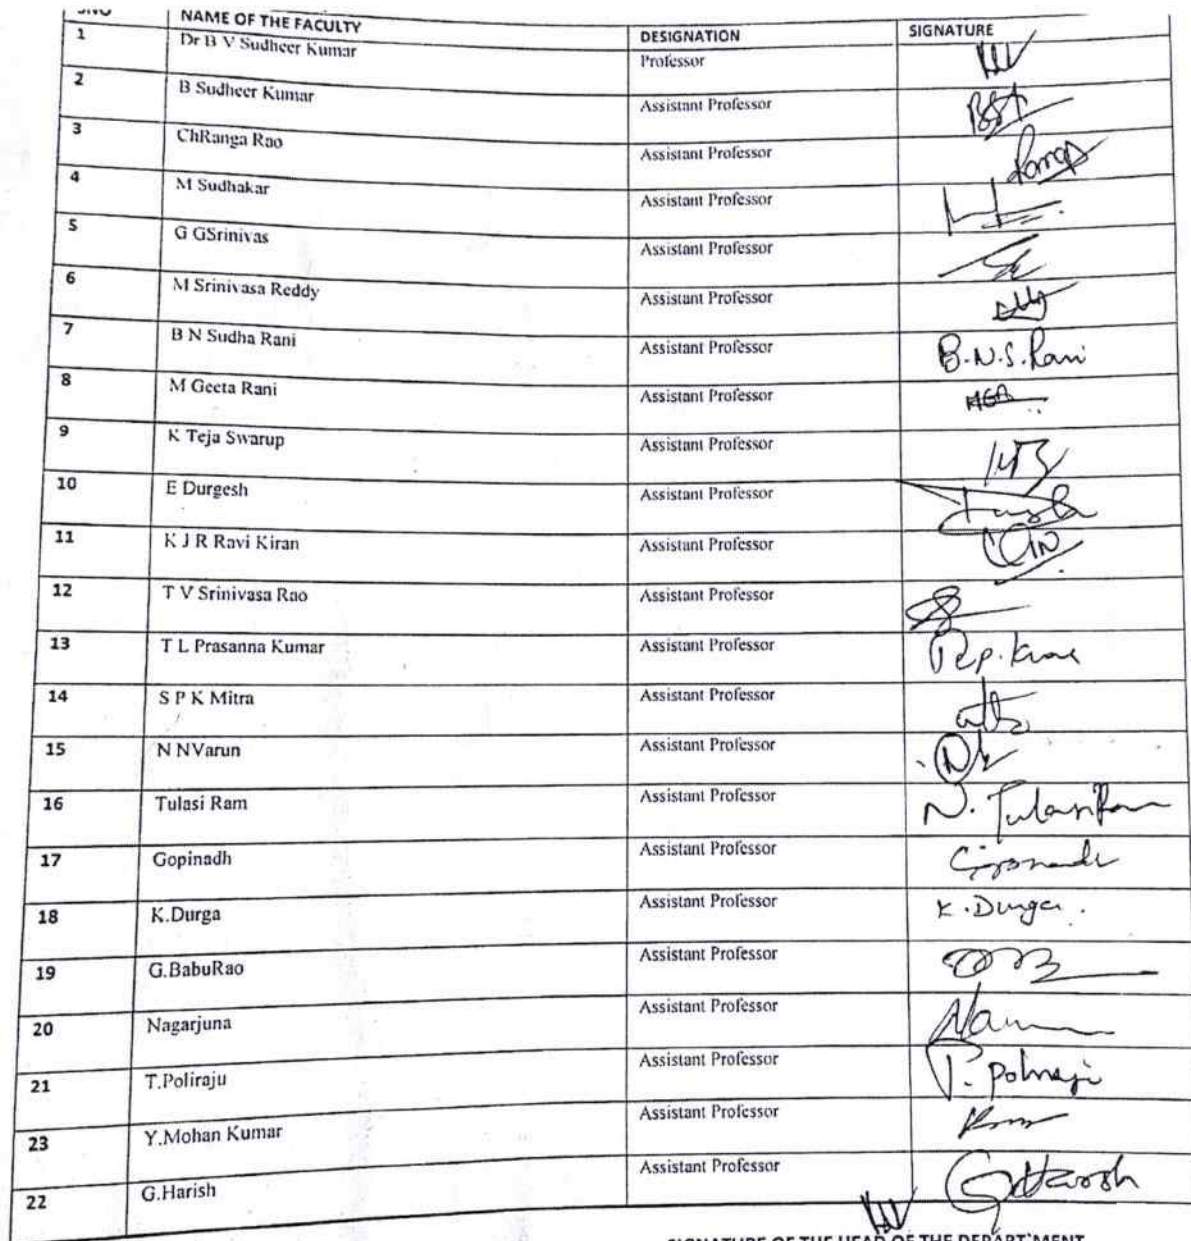 SNO NAME OF THE FACULTY DESIGNATION SIGNATURE
1 Dr B V Sudheer Kumar Professor
2 B Sudheer Kumar Assistant Professor
3 ChRanga Rao Assistant Professor
4 M Sudhakar Assistant Professor
5 G GSrinivas Assistant Professor
6 M Srinivasa Reddy Assistant Professor
7 B N Sudha Rani Assistant Professor B.N.S.Rani
8 M Geeta Rani Assistant Professor
9 K Teja Swarup Assistant Professor
10 E Durgesh Assistant Professor
11 K J R Ravi Kiran Assistant Professor
12 T V Srinivasa Rao Assistant Professor
13 T L Prasanna Kumar Assistant Professor
14 S P K Mitra Assistant Professor
15 N NVarun Assistant Professor
16 Tulasi Ram Assistant Professor N. TulasiRam
17 Gopinadh Assistant Professor
18 K.Durga Assistant Professor K.Durga.
19 G.BabuRao Assistant Professor
20 Nagarjuna Assistant Professor
21 T.Poliraju Assistant Professor T. Poliraju
23 Y.Mohan Kumar Assistant Professor
22 G.Harish Assistant Professor G Harish
SIGNATURE OF THE HEAD OF THE DEPART`MENT